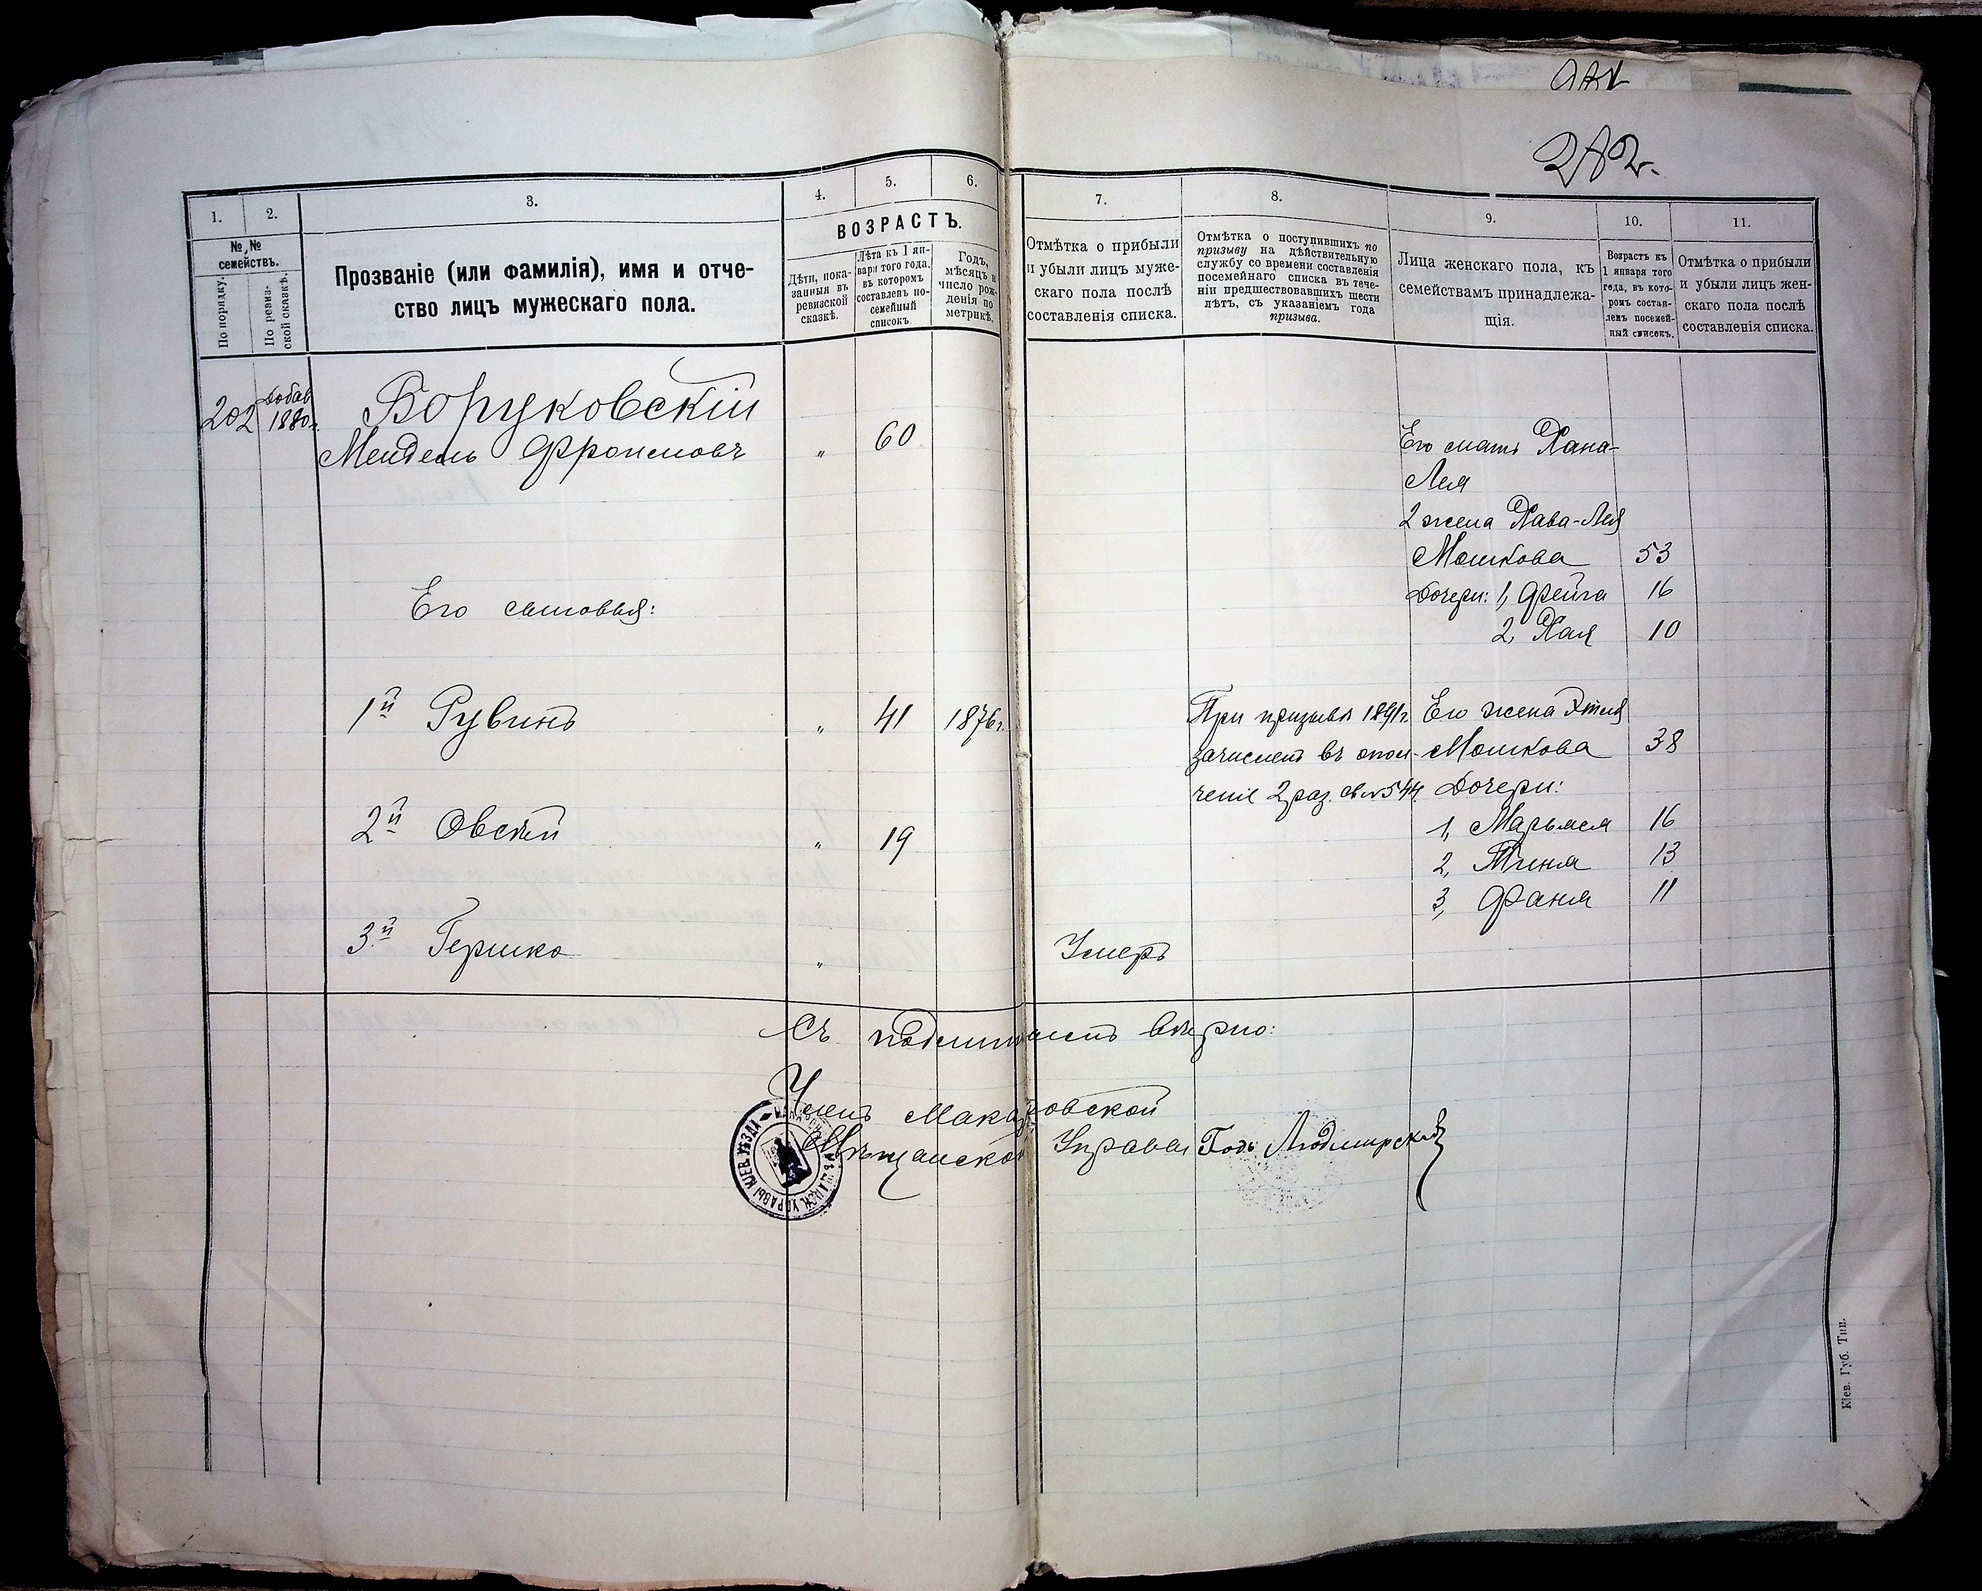 282.
1.
2.
3.
4.
5.
6.
7.
8.
9.
10.
11.
№ № семействъ.
По порядку.
По ревиз-
ской сказкѣ.
Прозваніе (или фамилія), имя и отче-
ство лицъ мужескаго пола.
ВОЗРАСТЪ.
Дѣти, пока-
занныя въ
ревизской
сказкѣ.
Лѣта къ 1 ян-
варя того года,
въ которомъ
составленъ по-
семейный
списокъ.
Годъ,
мѣсяцъ и
число рож-
денія по
метрикѣ.
Отмѣтка о прибыли
и убыли лицъ муже-
скаго пола послѣ
составленія списка.
Отмѣтка о поступившихъ по
призыву на дѣйствительную
службу со времени составленія
посемейнаго списка въ тече-
ніи предшествовавшихъ шести
лѣтъ, съ указаніемъ года
призыва.
Лица женскаго пола, къ
семействамъ принадлежа-
щія.
Возрастъ къ
1 января того
года, въ кото-
ромъ состав-
ленъ посемей-
ный списокъ.
Отмѣтка о прибыли
и убыли лицъ жен-
скаго пола послѣ
составленія списка.
202 добав. 1880 г.
Боруковскій
Мендель Фроимовъ " 60
Его мать Хана-
Лея
2 жена Хава-Лея
Мошкова 53
Его сыновья:
Дочери: 1, Фейга 16
2, Хая 10
1й Рувинъ " 41 1876 г.
При призывѣ 1891 г.
зачисленъ въ опол-
ченіе 2 раз. св. № 544.
Его жена Этля
Мошкова 38
Дочери:
1, Марьяся 16
2, 13
3, Фаня 11
2й Овсѣй " 19
3й Гершко "
Умеръ
Съ подлиннымъ вѣрно:
Членъ Макаровской
Мѣщанской Управы
МѢЩАНСК. УПРАВЫ КІЕВ. УѢЗДА
Кіев. Губ. Тип.